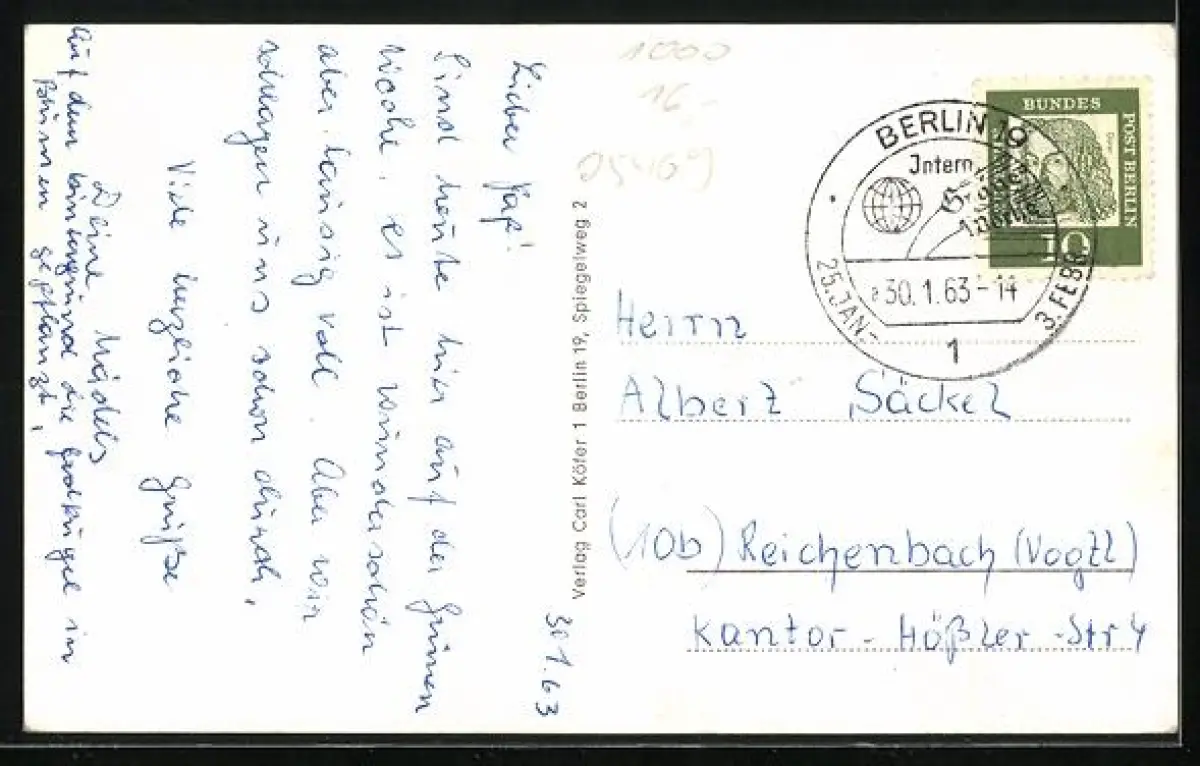 30.1.63
Lieber Pap!
Sind heute hier auf der Grünen
Woche. es ist wunderschön
aber voll. Aber wir
schlagen uns schon durch,
Viele herzliche Grüße
Deine Mädels
Auf dem sind die in
Blumen gepflanzt,
Verlag Carl Köfer 1 Berlin 19, Spiegelweg 2
1000
16.-
05469
BUNDES
POST BERLIN
Dürer
10
BERLIN 19
Intern.
Grüne
25.JAN.-
30.1.63-14
3.FEBR
1
Herrn
Albert Säckel
(10b) Reichenbach (Vogtl)
Kantor-Hößler-Str 4